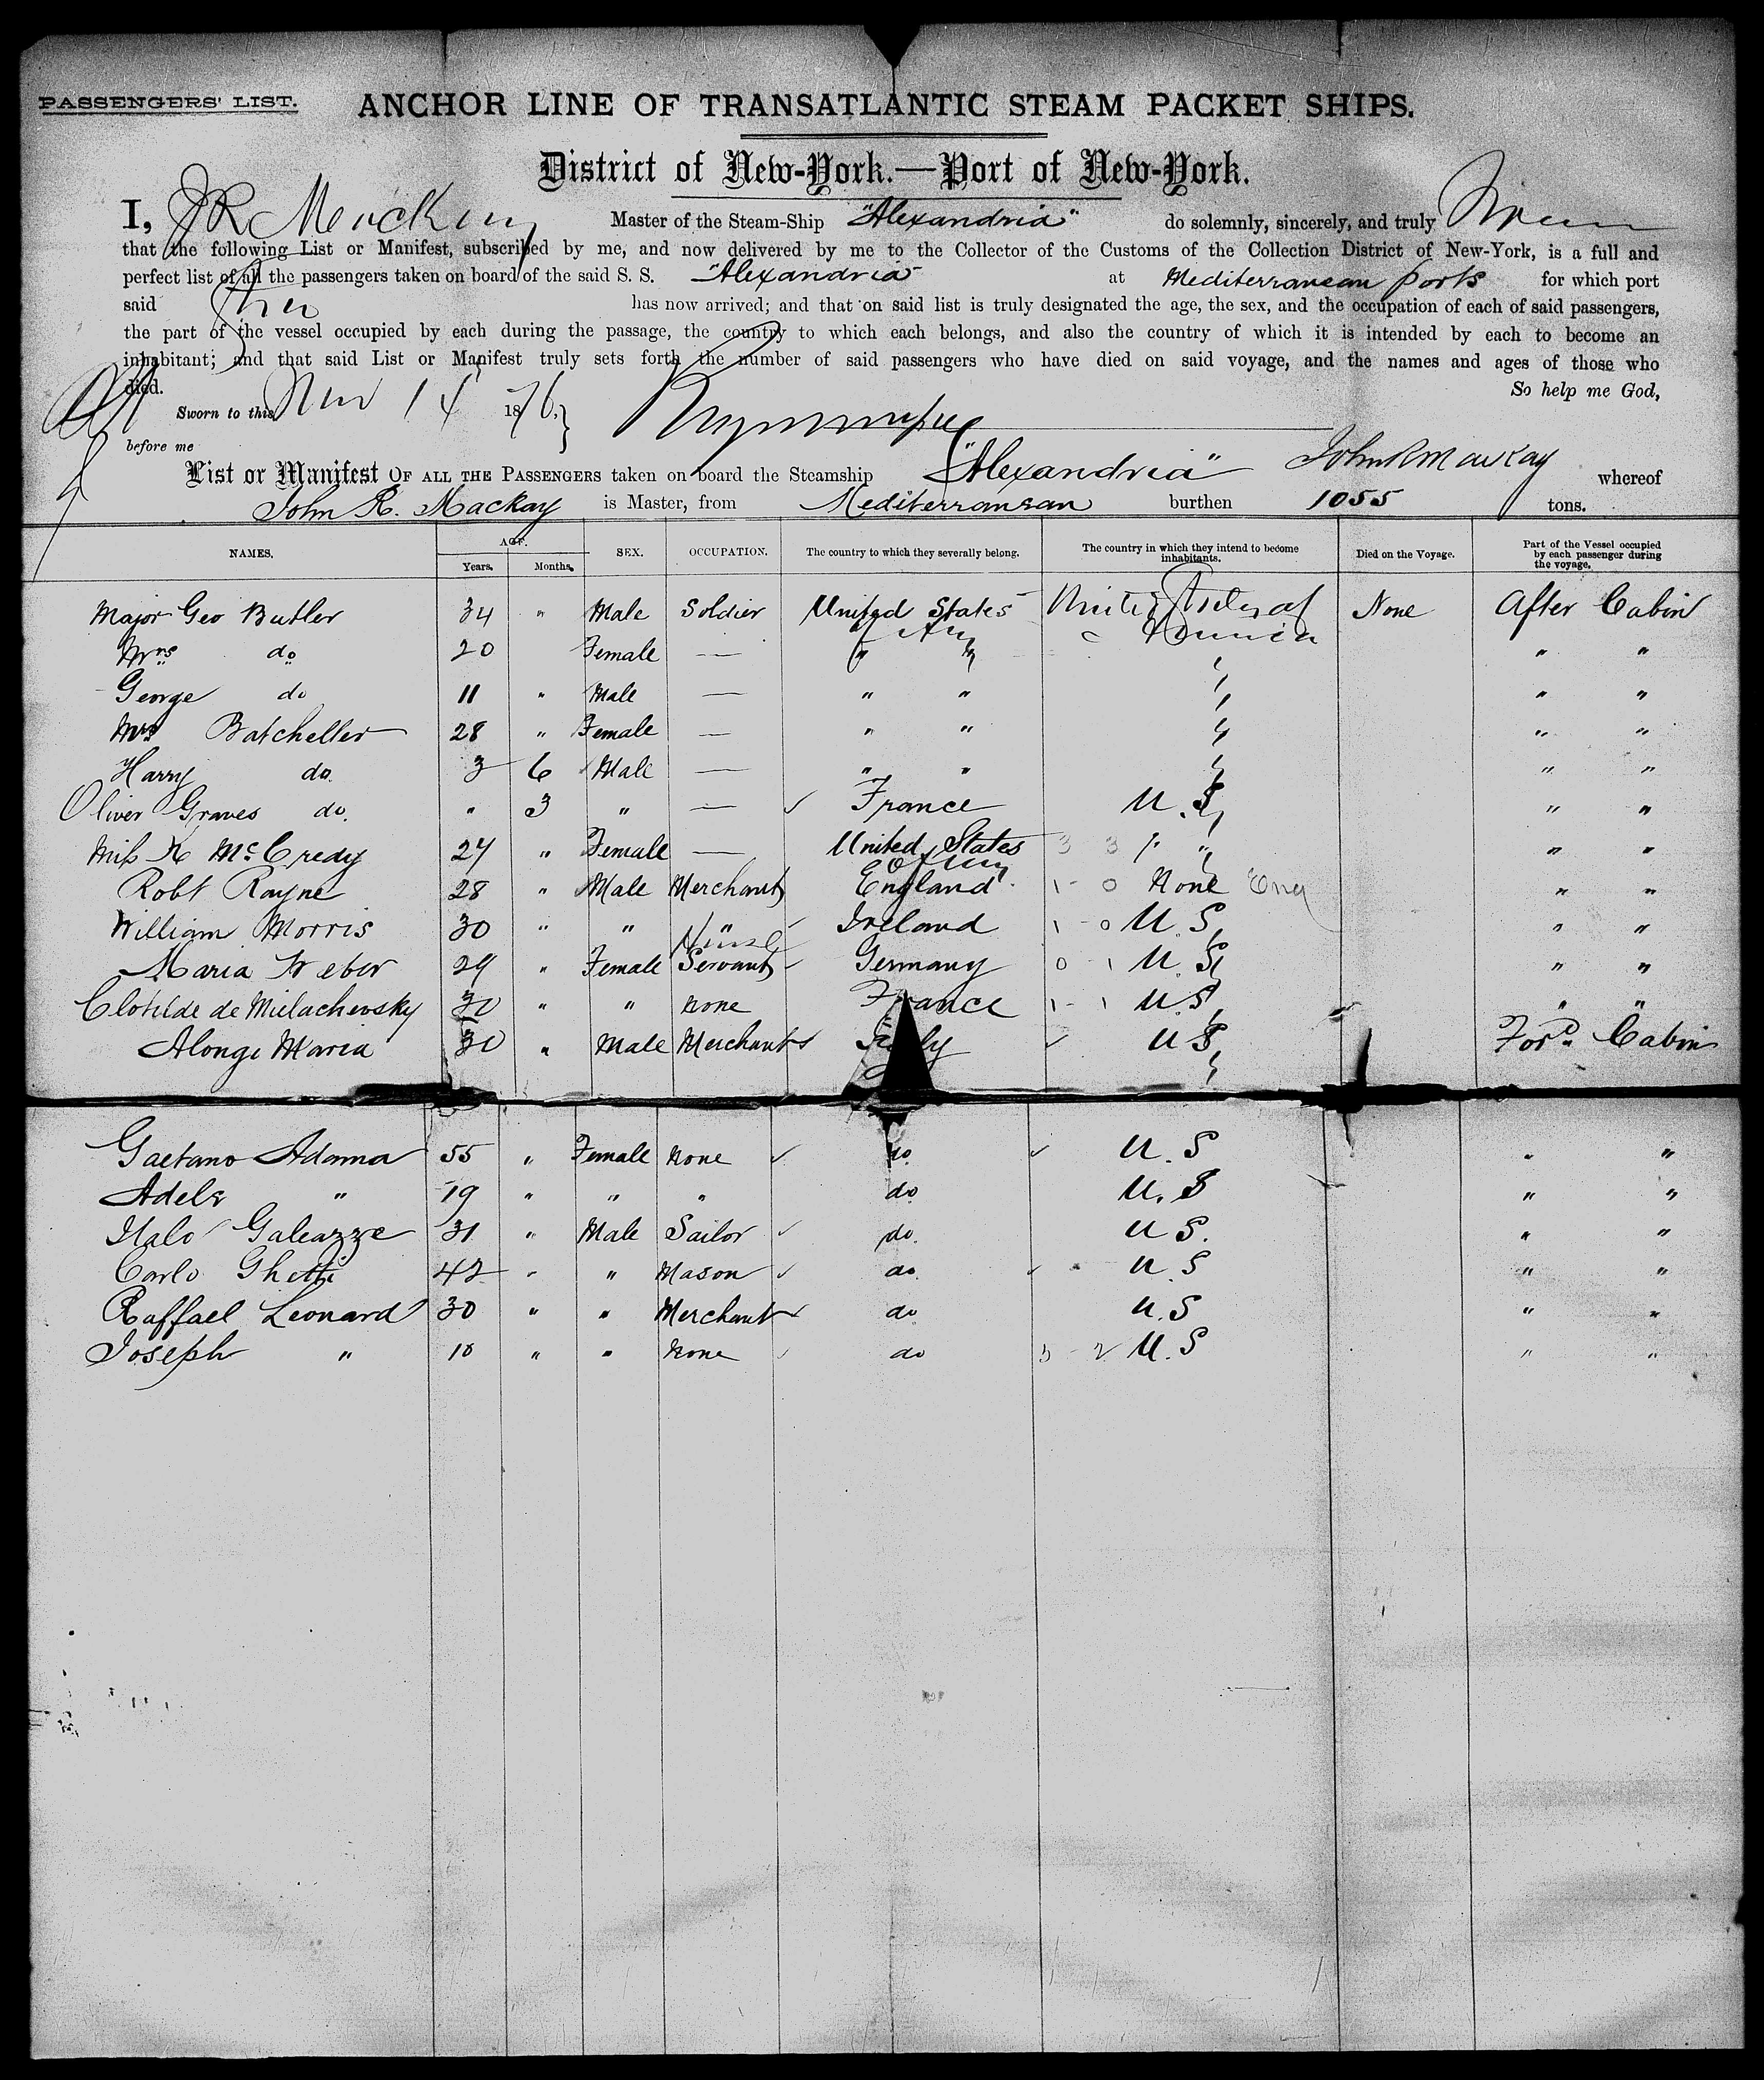 PASSENGERS' LIST. ANCHOR LINE OF TRANSATLANTIC STEAM PACKET SHIPS.
District of New-York.—Port of New-York.
I, J R Mackay Master of the Steam-Ship "Alexandria" do solemnly, sincerely, and truly Swear
that the following List or Manifest, subscribed by me, and now delivered by me to the Collector of the Customs of the Collection District of New-York, is a full and
perfect list of all the passengers taken on board of the said S. S. "Alexandria" at Mediterranean Ports for which port
said has now arrived; and that on said list is truly designated the age, the sex, and the occupation of each of said passengers,
the part of the vessel occupied by each during the passage, the country to which each belongs, and also the country of which it is intended by each to become an
inhabitant; and that said List or Manifest truly sets forth the number of said passengers who have died on said voyage, and the names and ages of those who
died. So help me God,
Sworn to this Nov 14 1876,
before me
List or Manifest OF ALL THE PASSENGERS taken on board the Steamship "Alexandria" John R Mackay whereof
John R. Mackay is Master, from Mediterranean burthen 1055 tons.
NAMES. AGE. Years. Months. SEX. OCCUPATION. The country to which they severally belong. The country in which they intend to become inhabitants. Died on the Voyage. Part of the Vessel occupied by each passenger during the voyage.
Major Geo Butler 34 " Male Soldier United States United States of None After Cabin
Mrs do 20 Female — " " America " "
George do 11 " Male — " " " " "
Mrs Batcheller 28 " Female — " " " " "
Harry do. 3 6 Male — " " " " "
Oliver Graves do. " 3 " — France U.S, " "
Miss K McCredy 24 " Female — United States " " " "
Robt Rayne 28 " Male Merchant England None Eng " "
William Morris 30 " " " Ireland U.S, " "
Maria Weber 29 " Female Nurse Servant Germany U.S, " "
Clotilde de Mielachevsky 30 " " None France U.S, " "
Alongi Maria 30 " Male Merchant U S, For'd Cabin
Gaetano Adama 55 " Female None do. U.S " "
Adele " 19 " " " do U.S " "
Italo Galeazze 31 " Male Sailor do. U S. " "
Carlo Ghetti 42 " " Mason do. U.S " "
Raffael Leonard 30 " " Merchant do U.S " "
Joseph " 10 " " None do U.S " "